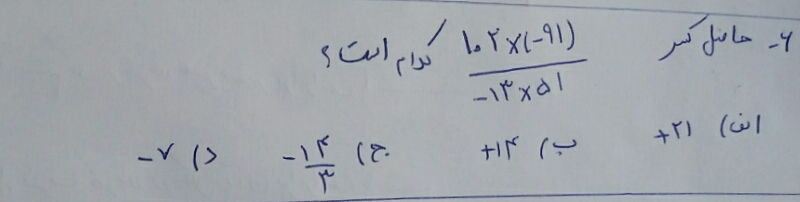 ۶- حاصل کسر ۱۰۲×(-۹۱) / -۱۳×۵۱ کدام است؟
الف) +۲۱ ب) +۱۴ ج) -۱۴/۳ د) -۷